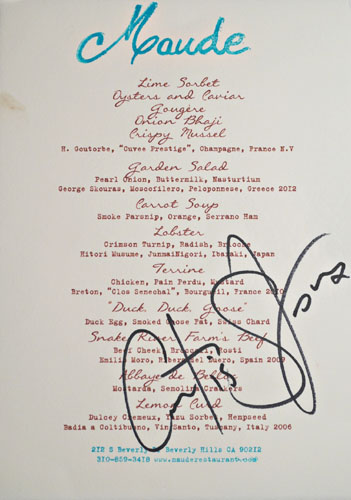 Maude
Lime Sorbet
Oysters and Caviar
Gougère
Onion Bhaji
Crispy Mussel
H. Goutorbe, "Cuvee Prestige", Champagne, France N.V
Garden Salad
Pearl Onion, Buttermilk, Nasturtium
George Skouras, Moscofilero, Peloponnese, Greece 2012
Carrot Soup
Smoke Parsnip, Orange, Serrano Ham
Lobster
Crimson Turnip, Radish, Brioche
Hitori Musume, JunmaiNigori, Ibaraki, Japan
Terrine
Chicken, Pain Perdu, Mustard
Breton, "Clos Senechal", Bourgueil, France 2010
"Duck, Duck, Goose"
Duck Egg, Smoked Goose Fat, Swiss Chard
Snake River Farms Beef
Beef Cheek, Broccoli, Rosti
Emilio Moro, Ribera del Duero, Spain 2009
Abbaye de
Mostarda, Crackers
Lemon Curd
Dulcey Cremeux, Yuzu Sorbet, Hempseed
Badia a Coltibuono, Vin Santo, Tuscany, Italy 2006
212 S Beverly Dr Beverly Hills CA 90212
310-859-3418 www.mauderestaurant.com